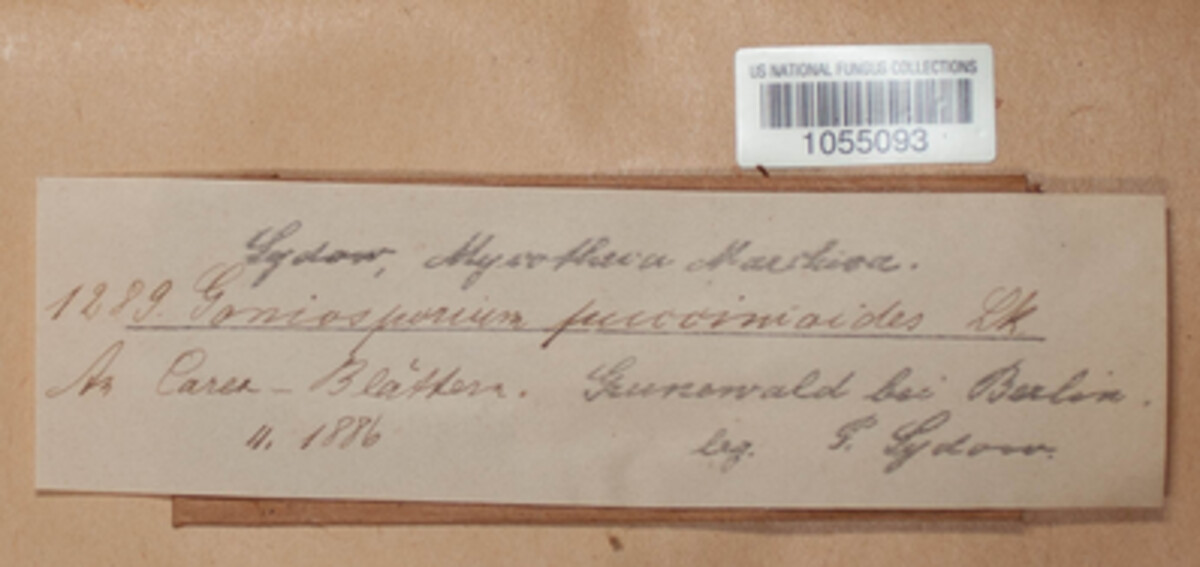 US NATIONAL FUNGUS COLLECTIONS
1055093
Sydow, Mycotheca Marchica.
1289. Goniosporium puccinioides Lk.
An Carex-Blättern. Grunewald bei Berlin.
4. 1886 leg. P. Sydow.